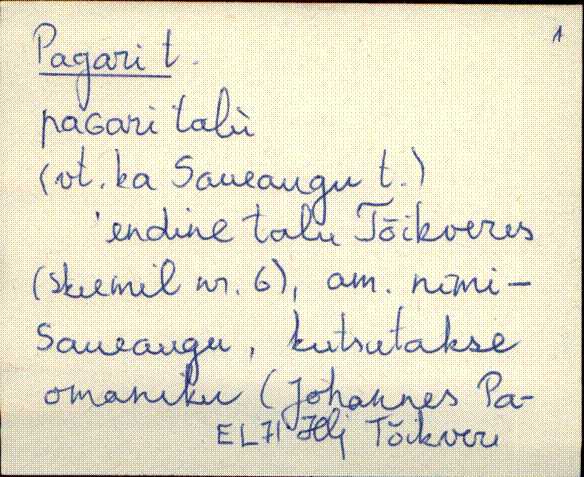 1
Pagari t.
paGari talù
(vt. ka Saueaugu t.)
'endine talu Tõikveres
(skeemil nr. 6), am. nimi-
Saueaugu, kutsutakse
omaniku (Johannes Pa-
EL71 Hlj Tõikvere